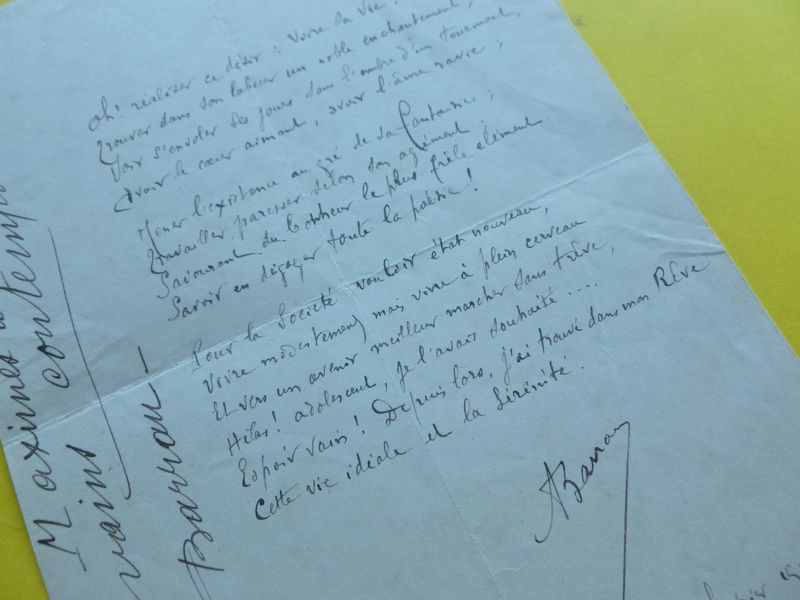 Oh! réaliser ce désir : Vivre sa Vie!
Trouver dans son labeur un noble enchantement,
Voir s'envoler ses jours sans l'ombre d'un tourment,
Avoir le cœur aimant, avoir l'âme ravie ;
Mener l'existence au gré de sa fantaisie ;
Travailler, paresser selon son agrément ;
Savourant du bonheur le plus frêle élément.
Savoir en dégager toute la poésie!
Pour la Société vouloir état nouveau,
Vivre modestement, mais vivre à plein cerveau
Et vers un avenir meilleur marcher sans trêve,
Hélas! adolescent, je l'avais souhaité....
Espoir vain! Depuis lors, j'ai trouvé dans mon Rêve
Cette vie idéale et la Sérénité.
ABarrau
Maximes
contemp
vains
Barrau —